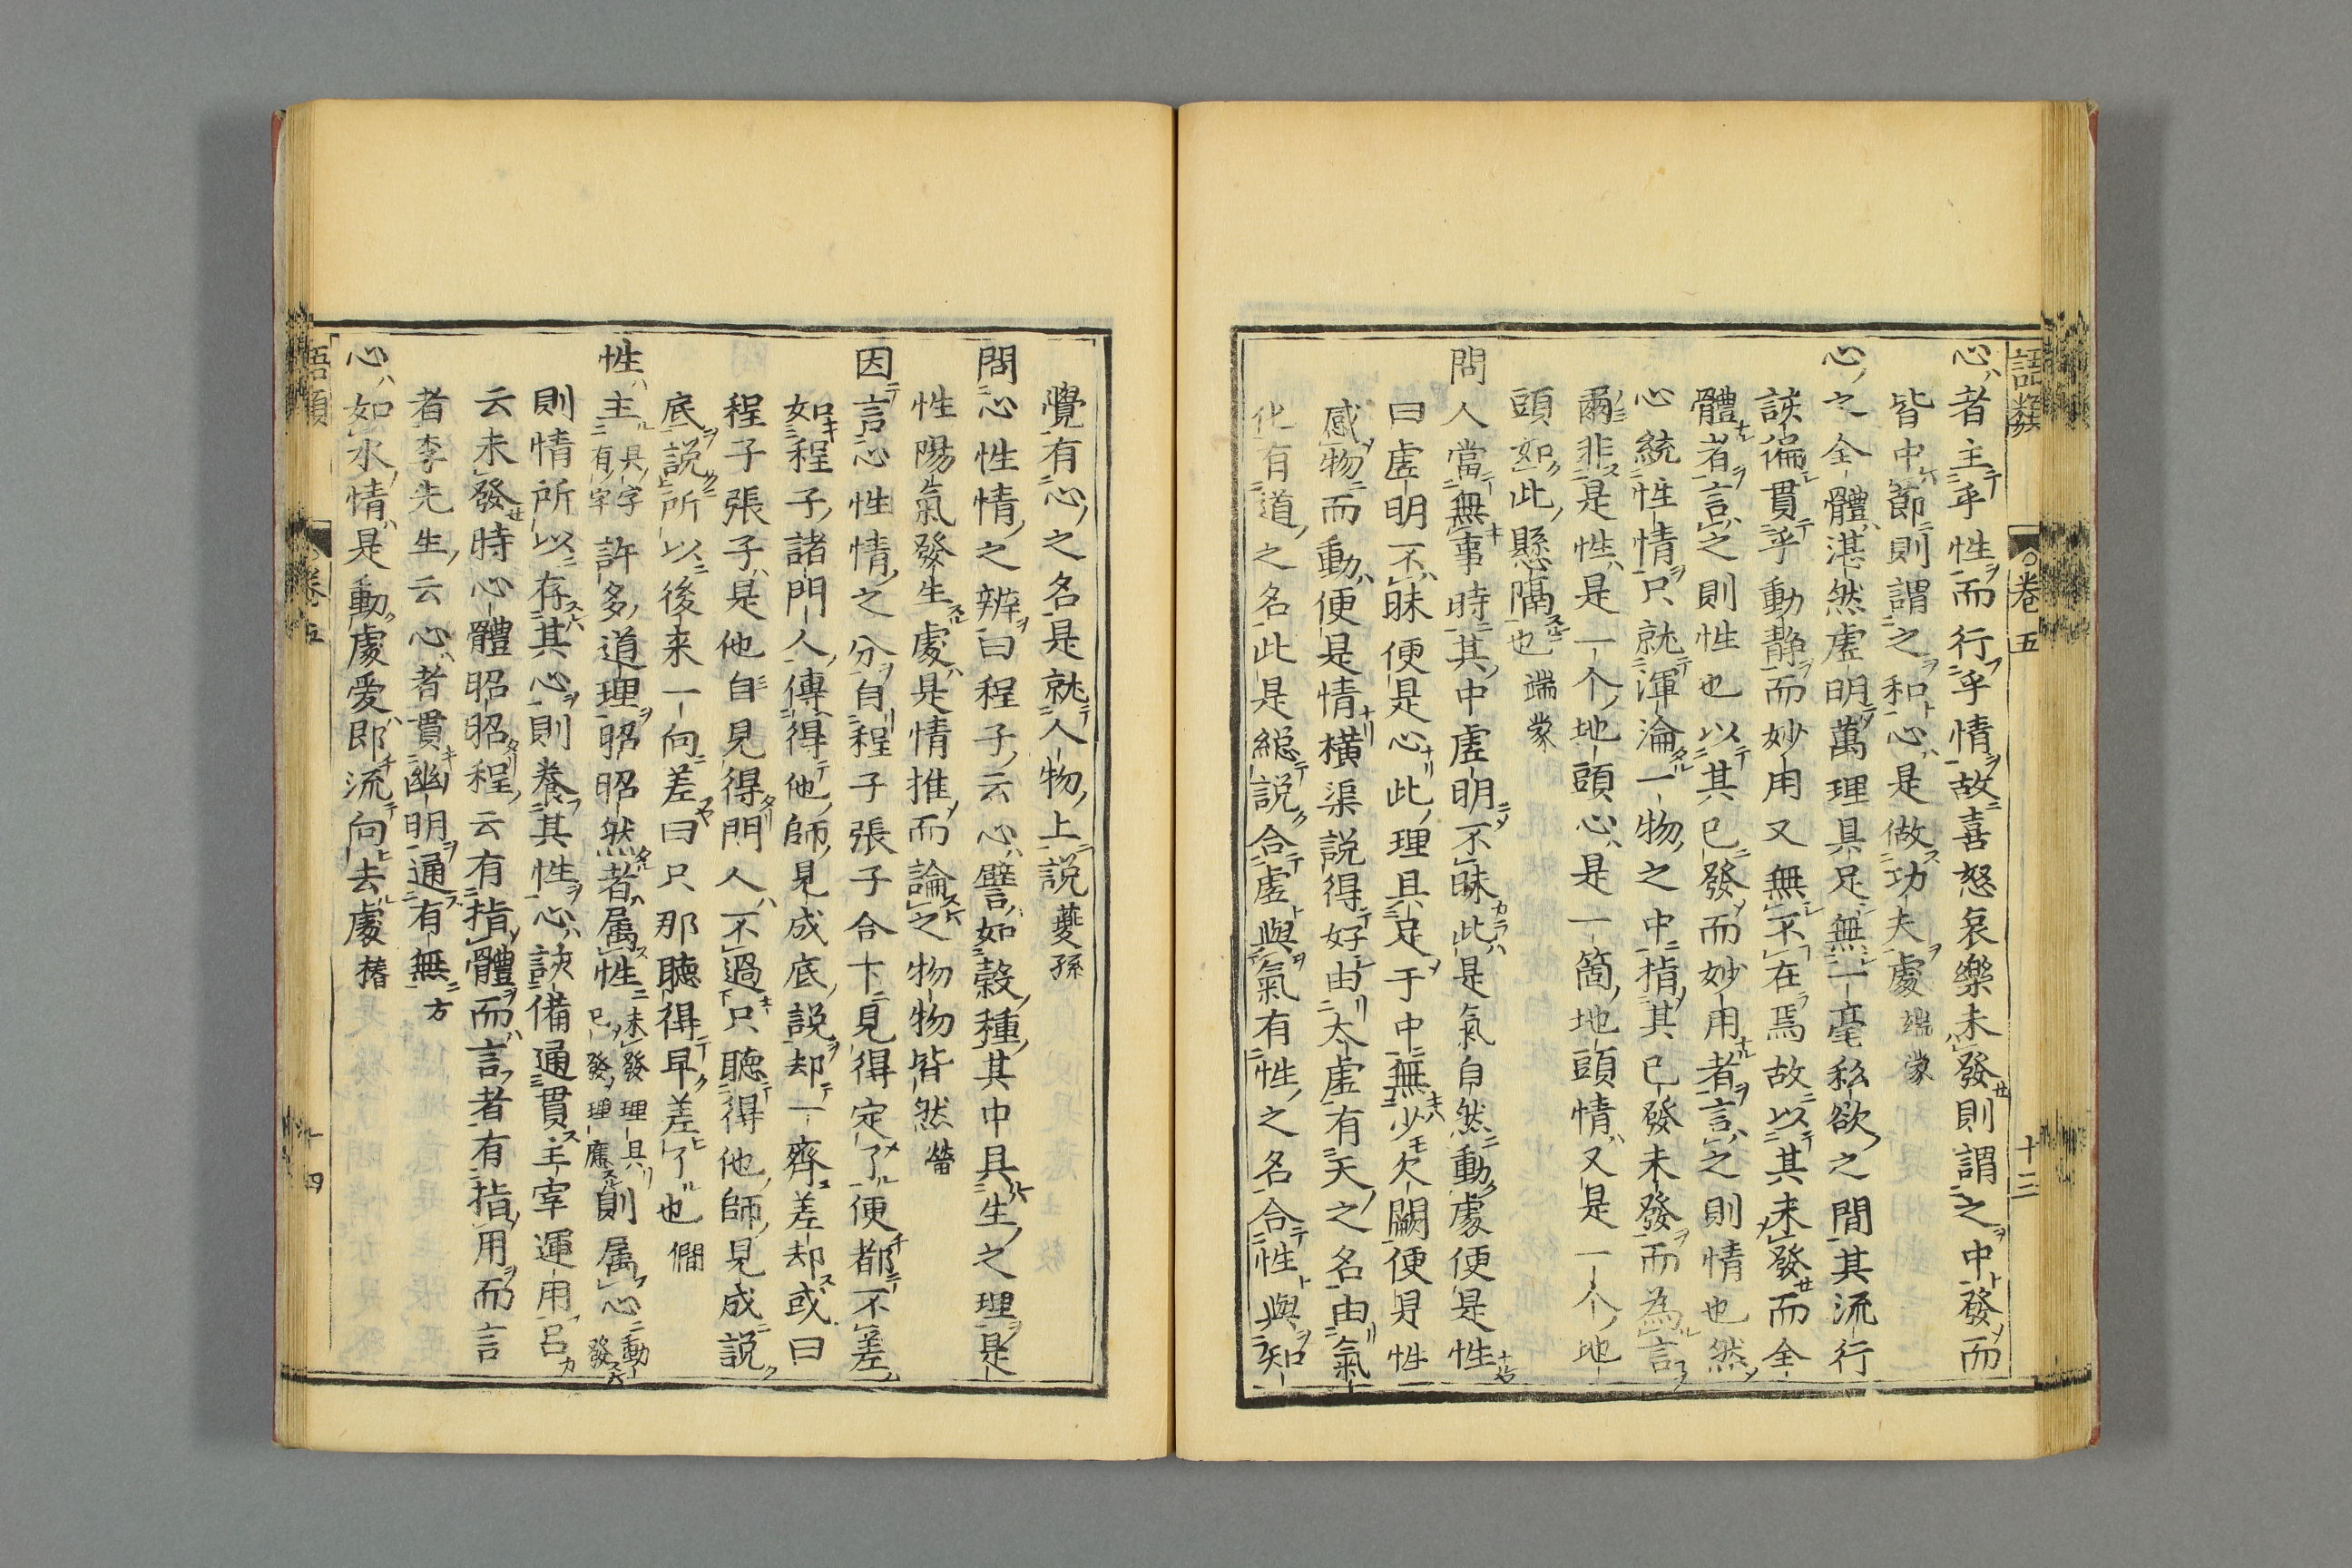 語類 卷五 十三
心者主乎性而行乎情故喜怒哀樂未發則謂之中發而
皆中節則謂之和心是做功夫處 端蒙
心之全體湛然虛明萬理具足無一毫私欲之間其流行
該徧貫乎動静而妙用又無不在焉故以其未發而全
體者言之則性也以其已發而妙用者言之則情也然
心統性情只就渾淪一物之中指其已發未發而為言
爾非是性是一个地頭心是一箇地頭情又是一个地
頭如此懸隔也 端蒙
問人當無事時其中虛明不昧此是氣自然動處便是性
曰虛明不昧便是心此理具足于中無少欠闕便是性
感物而動便是情橫渠説得好由太虛有天之名由氣
化有道之名此是総説合虛與氣有性之名合性與知
覺有心之名是就人物上説 夔孫
問心性情之辨曰程子云心譬如穀種其中具生之理是
性陽氣發生處是情推而論之物物皆然 㽦
因言心性情之分自程子張子合下見得定了便都不差
如程子諸門人傳得他師見成底説却一齊差却或曰
程子張子是他自見得門人不過只聽得他師見成説
底説所以後来一向差曰只那聽得早差了也 僩
性主具字有字許多道理昭昭然者属性未發理具已發理應則属心動發
則情所以存其心則養其性心該備通貫主宰運用吕
云未發時心體昭昭程云有指體而言者有指用而言
者李先生云心者貫幽明通有無 方
心如水情是動處爱即流向去處 椿
語類 卷五 十四